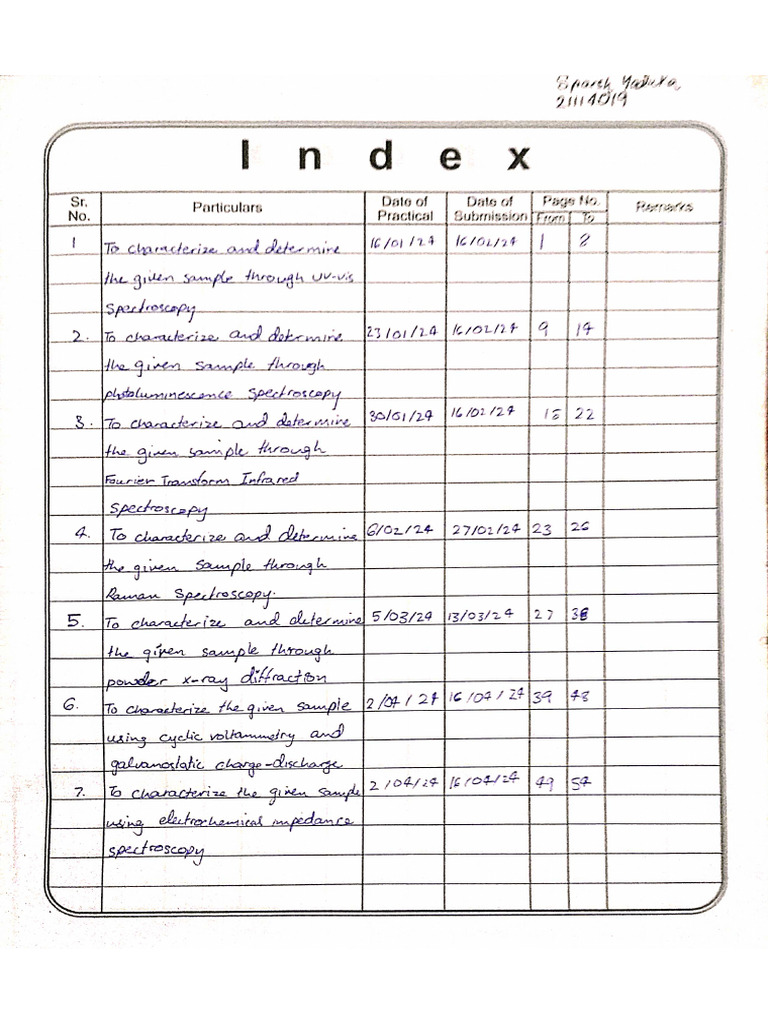 Sparsh
21114019
Index
Sr. No. Particulars Date of Practical Date of Submission Page No. From To Remarks
1 To characterize and determine 16/01/24 16/02/24 1 8
the given sample through UV-vis
Spectroscopy
2. To characterize and determine 23/01/24 16/02/24 9 14
the given sample through
photoluminescence spectroscopy
3. To characterize and determine 30/01/24 16/02/24 15 22
the given sample through
Fourier Transform Infrared
Spectroscopy
4. To characterize and determine 6/02/24 27/02/24 23 26
the given sample through
Raman Spectroscopy.
5. To characterize and determine 5/03/24 13/03/24 27 38
the given sample through
powder x-ray diffraction
6. To characterize the given sample 2/04/24 16/04/24 39 48
using cyclic voltammetry and
galvanostatic charge-discharge
7. To characterize the given sample 2/04/24 16/04/24 49 54
using electrochemical impedance
spectroscopy